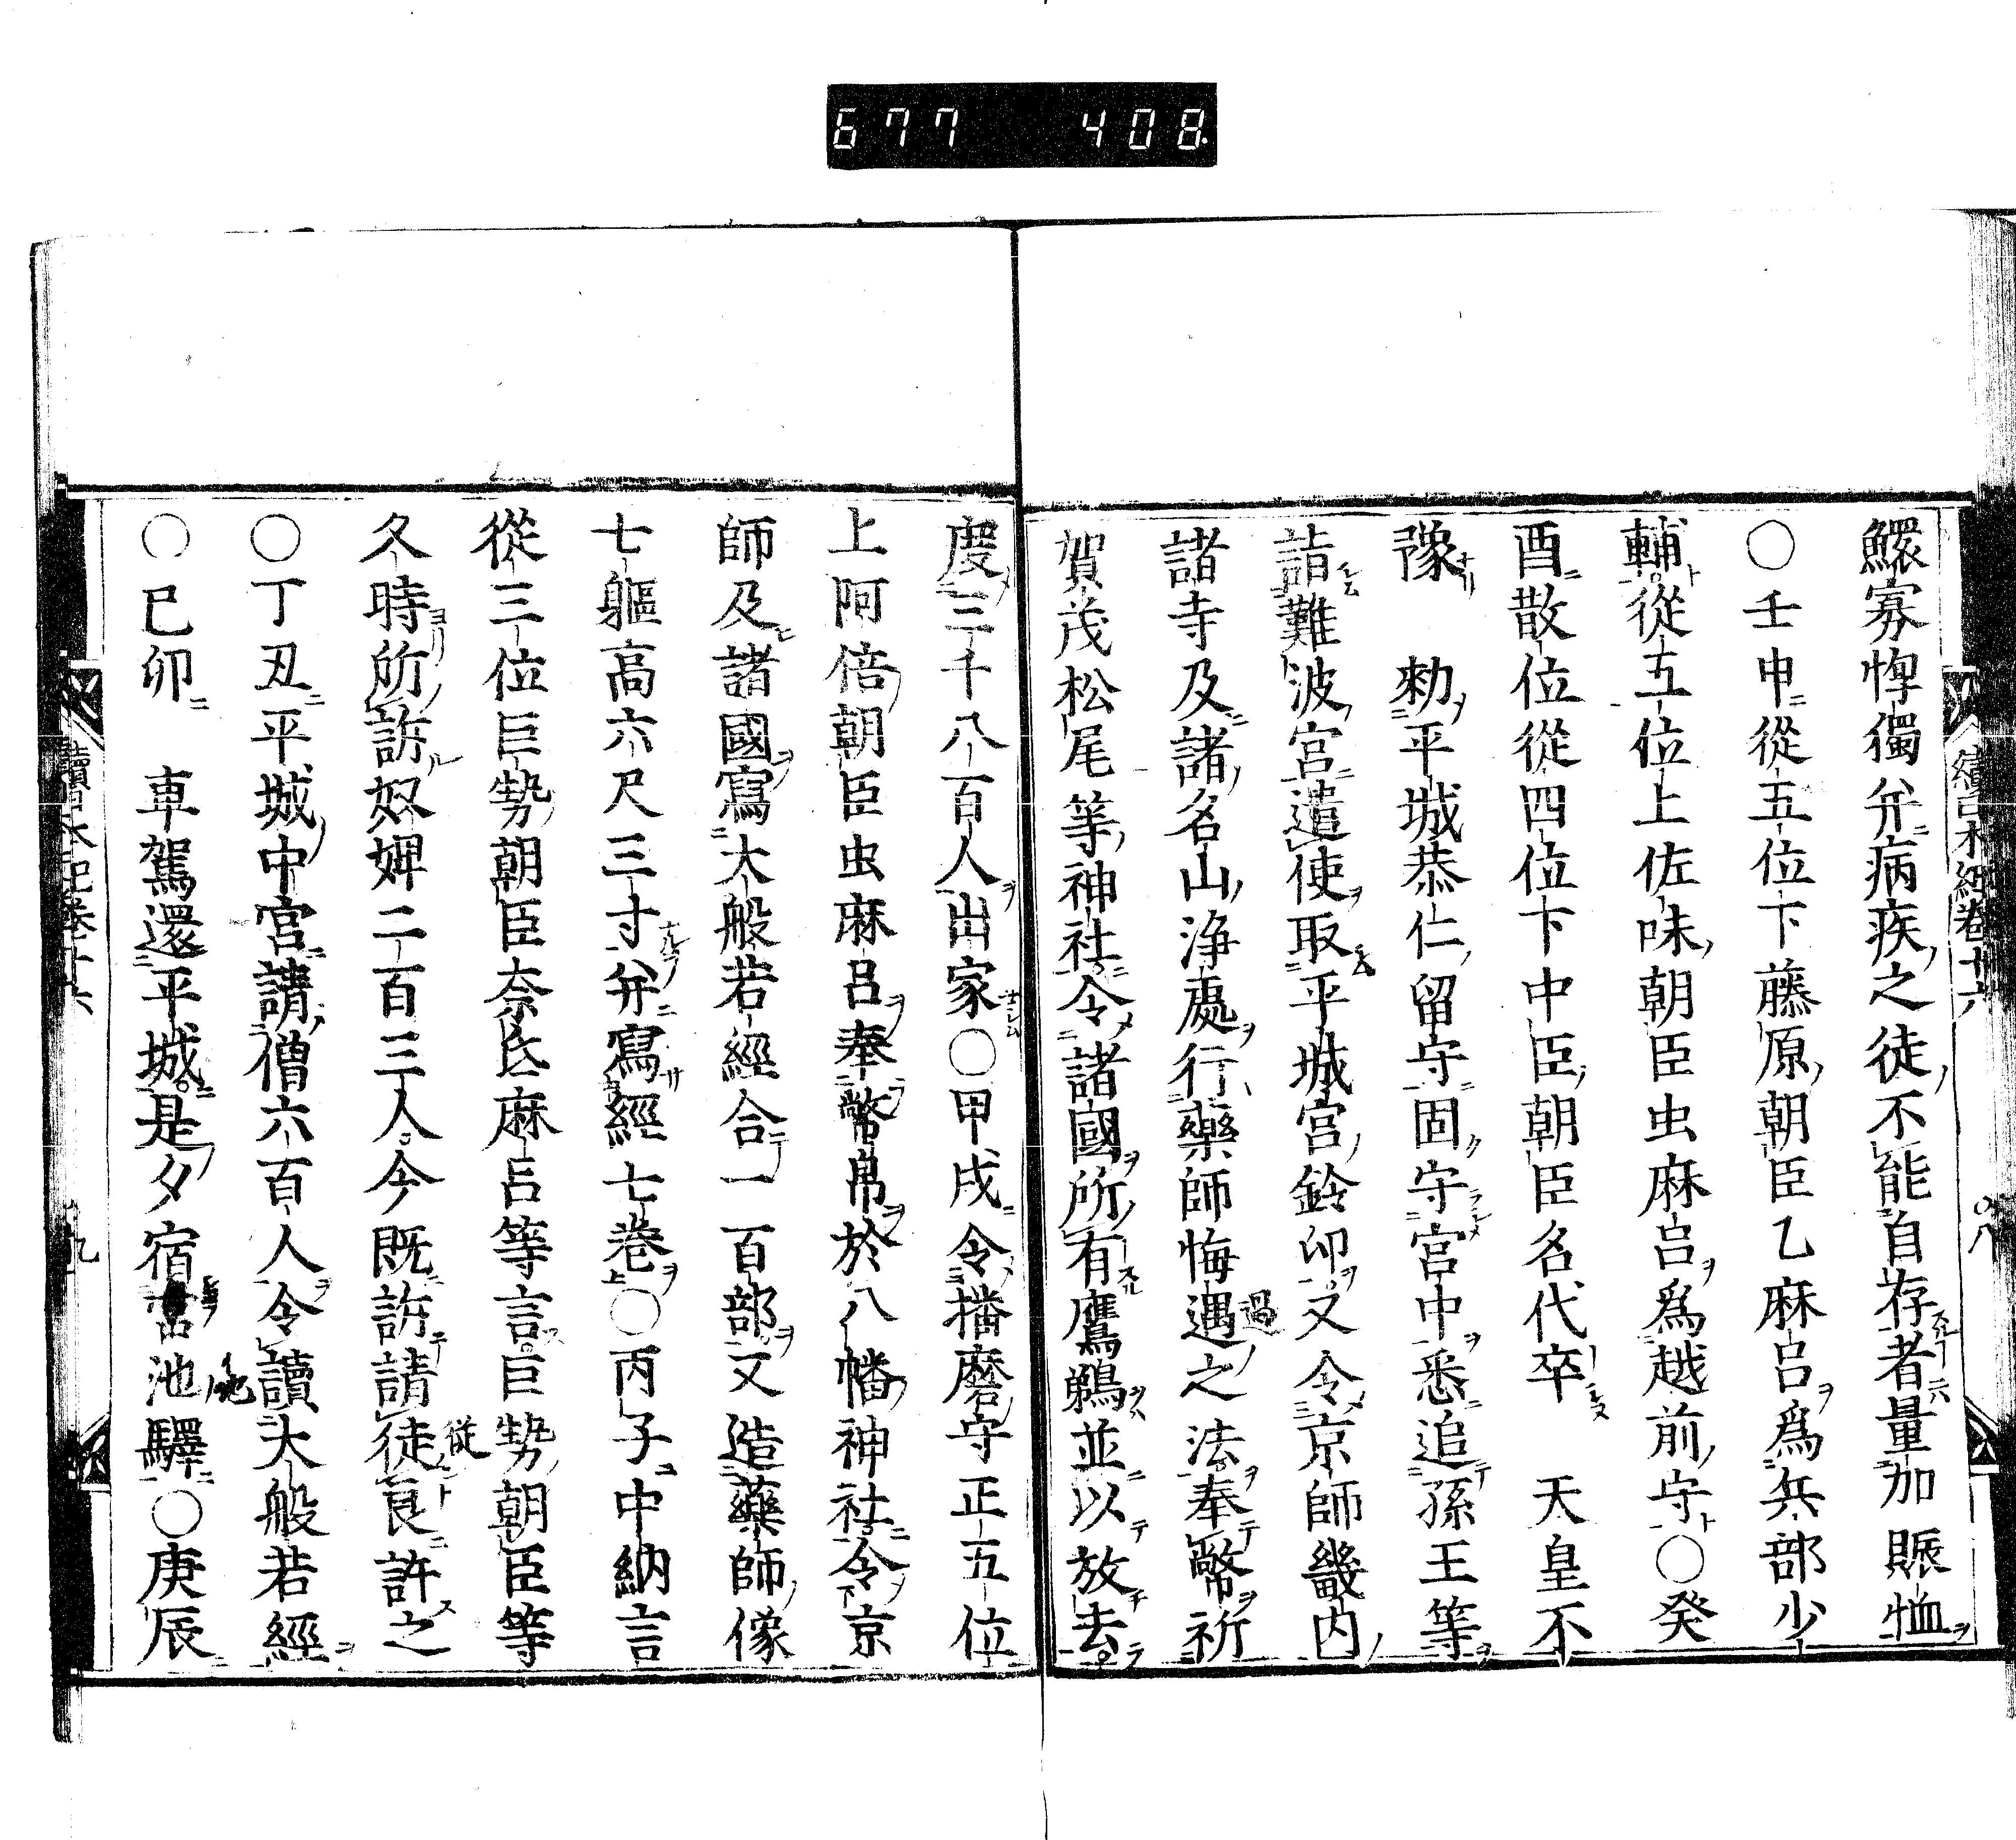 677 408
續日本紀卷十六
〇八
鰥寡惸獨并病疾之徒不能自存者量加賑恤
〇壬申從五位下藤原朝臣乙麻呂爲兵部少
輔從五位上佐味朝臣虫麻呂爲越前守〇癸
酉散位從四位下中臣朝臣名代卒　天皇不
豫　勅平城恭仁留守固守宮中悉追孫王等
詣難波宮遣使取平城宮鈴印又令京師畿内
諸寺及諸名山浄處行藥師悔過之法奉幣祈
賀茂松尾等神社令諸國所有鷹鵜並以放去
度三千八百人出家〇甲戌令播磨守正五位
上阿倍朝臣虫麻呂奉幣帛於八幡神社令京
師及諸國寫大般若經合一百部又造藥師像
七軀高六尺三寸并寫經七卷〇丙子中納言
從三位巨勢朝臣奈氐麻呂等言巨勢朝臣等
久時所訴奴婢二百三人今既訴請徒良許之
〇丁丑平城中宮請僧六百人令讀大般若經
〇已卯　車駕還平城是夕宿宮池驛〇庚辰
續日本紀卷十六
九